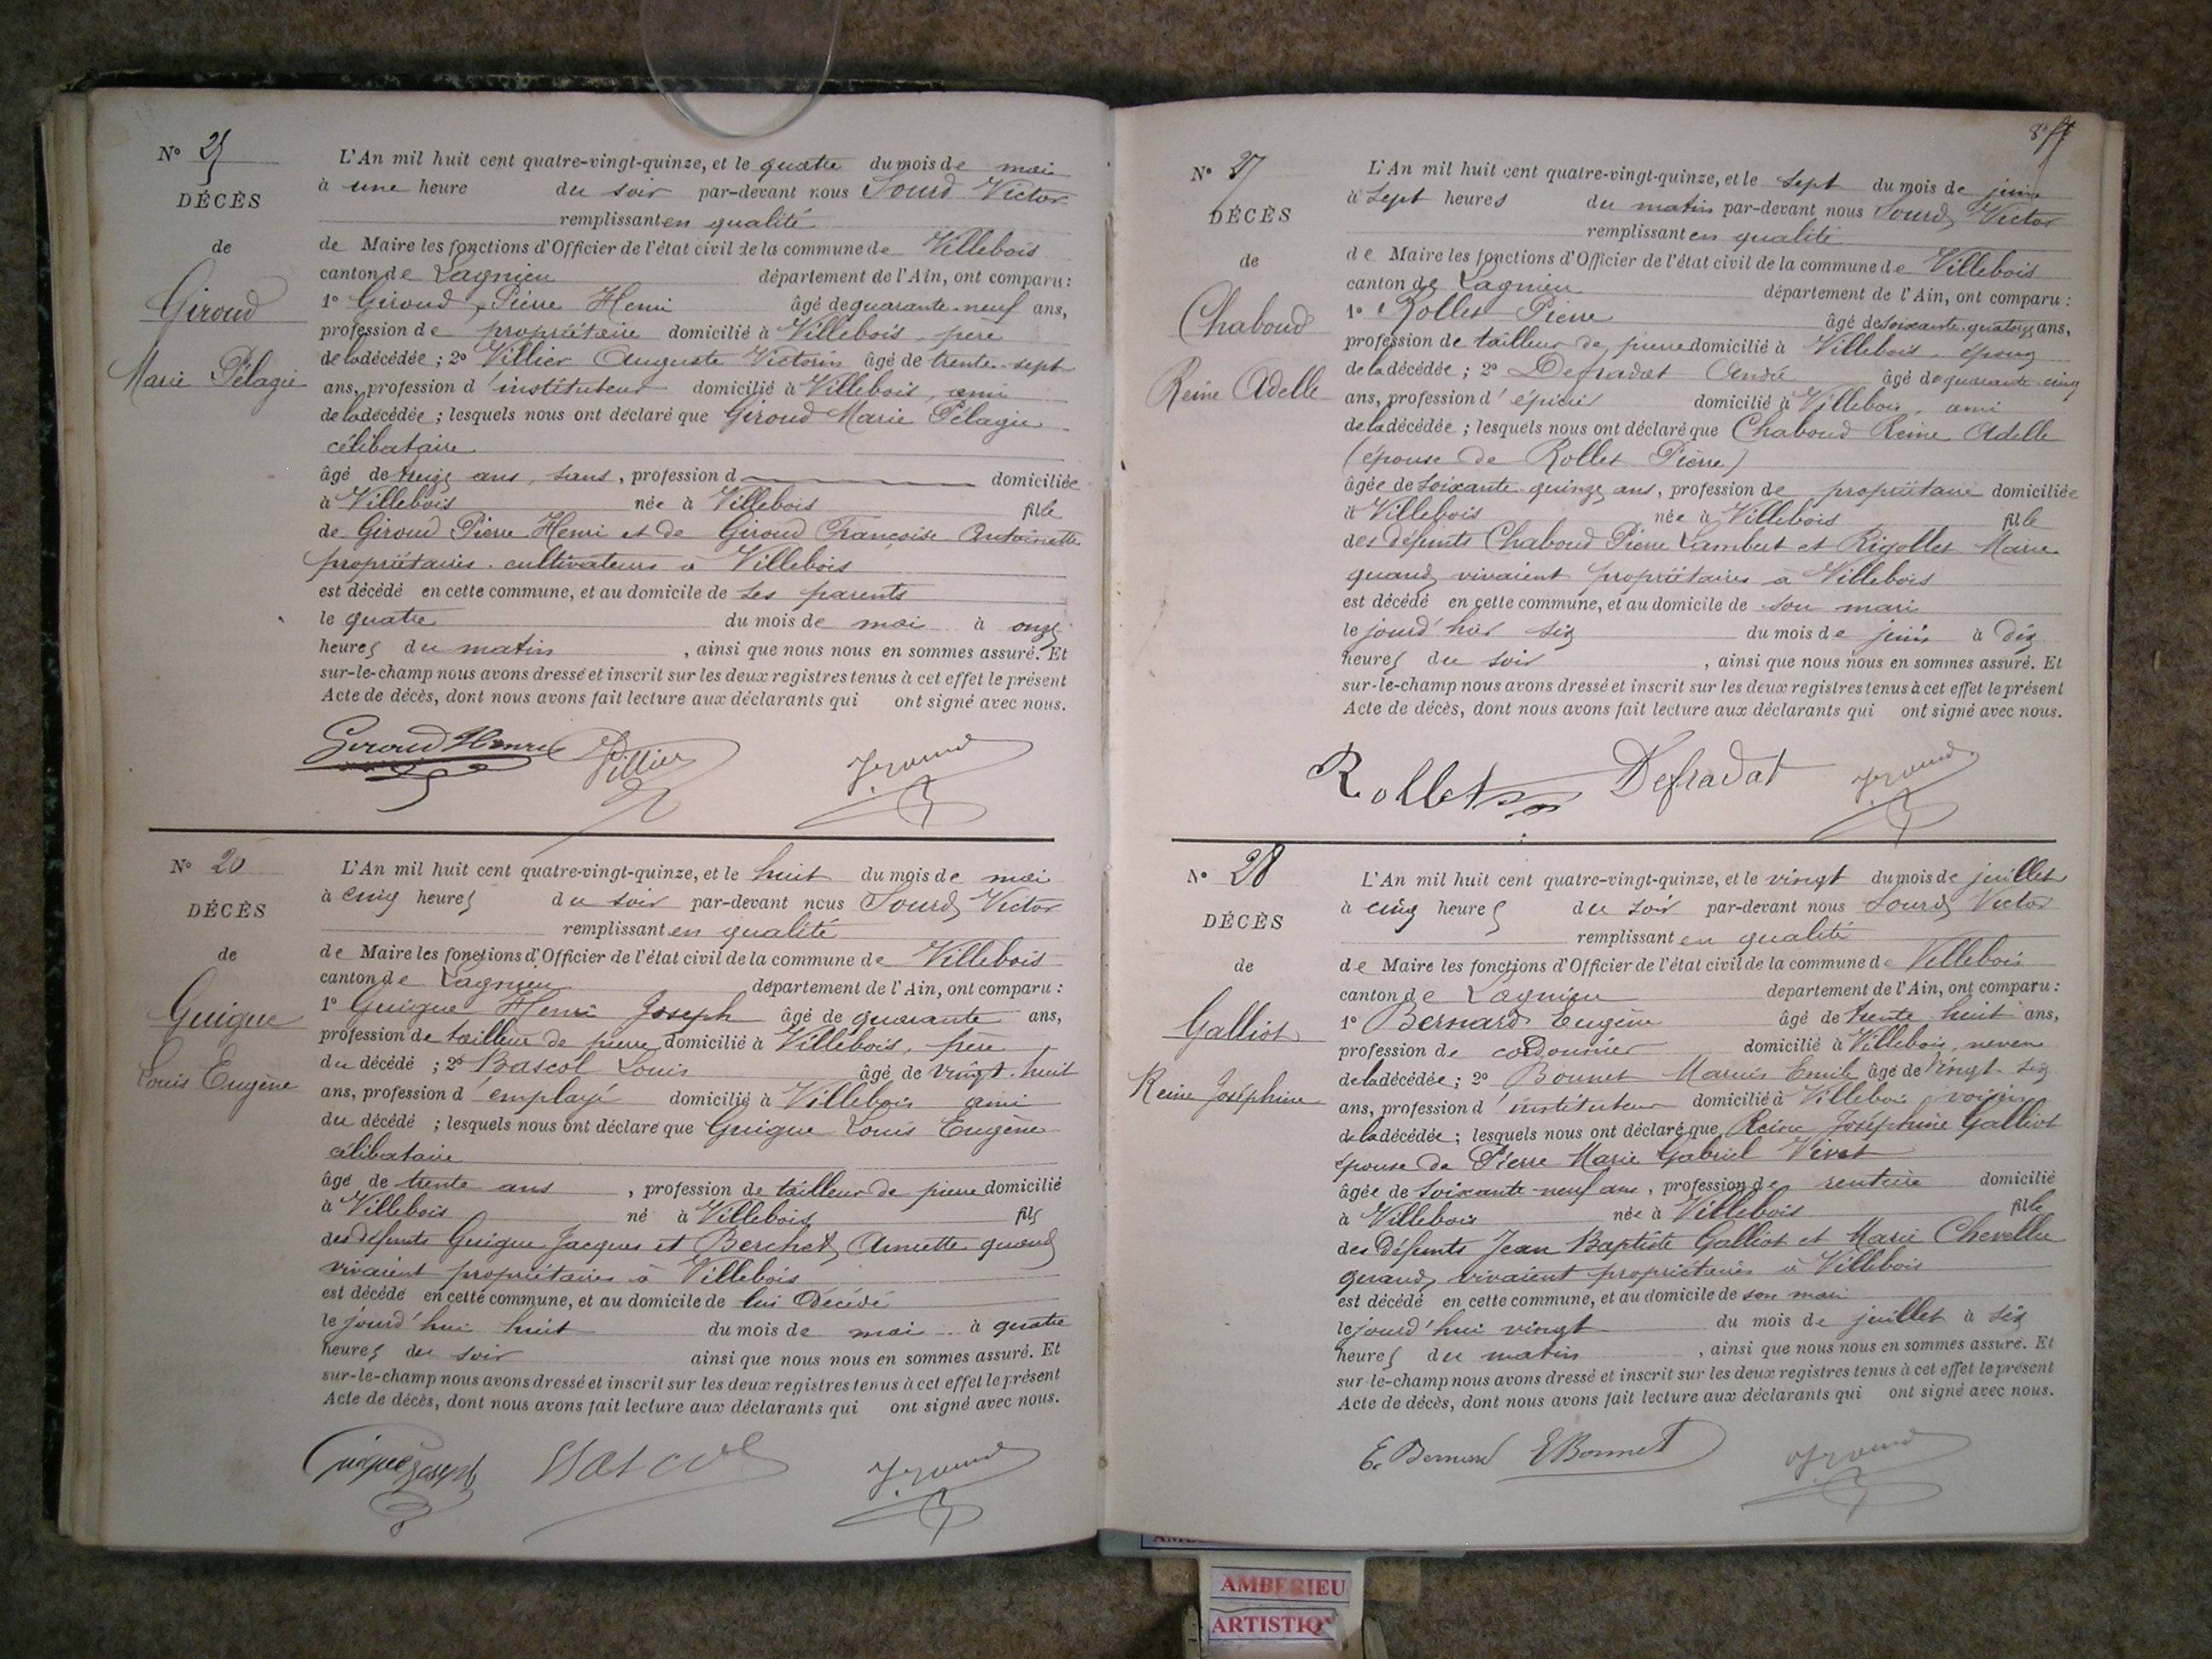 N° 25
DÉCÈS
de
Giroud
Marie Pélagie
L'An mil huit cent quatre-vingt-quinze, et le quatre du mois de mai
à une heure du soir par-devant nous Sourd Victor
remplissant en qualité
de Maire les fonctions d'Officier de l'état civil de la commune de Villebois
canton de Lagnieu département de l'Ain, ont comparu :
1° Giroud Pierre Henri âgé de quarante-neuf ans,
profession de propriétaire domicilié à Villebois, père
de la décédée ; 2° Villier Auguste Victorin âgé de trente-sept
ans, profession d'instituteur domicilié à Villebois, ami
de la décédée ; lesquels nous ont déclaré que Giroud Marie Pélagie
célibataire
âgé de treize ans, sans, profession d domiciliée
à Villebois née à Villebois fille
de Giroud Pierre Henri et de Giroud Françoise Antoinette
propriétaires cultivateurs à Villebois
est décédé en cette commune, et au domicile de ses parents
le quatre du mois de mai à onze
heures du matin, ainsi que nous nous en sommes assuré. Et
sur-le-champ nous avons dressé et inscrit sur les deux registres tenus à cet effet le présent
Acte de décès, dont nous avons fait lecture aux déclarants qui ont signé avec nous.
Giroud Henri Villier
N° 26
DÉCÈS
de
Guigue
Louis Eugène
L'An mil huit cent quatre-vingt-quinze, et le huit du mois de mai
à cinq heures du soir par-devant nous Sourd Victor
remplissant en qualité
de Maire les fonctions d'Officier de l'état civil de la commune de Villebois
canton de Lagnieu département de l'Ain, ont comparu :
1° Guigue Henri Joseph âgé de quarante ans,
profession de tailleur de pierre domicilié à Villebois, frère
du décédé ; 2° Bascol Louis âgé de vingt-huit
ans, profession d'employé domicilié à Villebois ami
du décédé ; lesquels nous ont déclaré que Guigue Louis Eugène
célibataire
âgé de trente ans, profession de tailleur de pierre domicilié
à Villebois né à Villebois fils
des défunts Guigue Jacques et Berchet Annette quand
vivaient propriétaires à Villebois
est décédé en cette commune, et au domicile de lui décédé
le jourd'hui huit du mois de mai à quatre
heures du soir ainsi que nous nous en sommes assuré. Et
sur-le-champ nous avons dressé et inscrit sur les deux registres tenus à cet effet le présent
Acte de décès, dont nous avons fait lecture aux déclarants qui ont signé avec nous.
Guigue Joseph Bascol
N° 27
DÉCÈS
de
Chaboud
Reine Adelle
L'An mil huit cent quatre-vingt-quinze, et le sept du mois de juin
à sept heures du matin par-devant nous Sourd Victor
remplissant en qualité
de Maire les fonctions d'Officier de l'état civil de la commune de Villebois
canton de Lagnieu département de l'Ain, ont comparu :
1° Rollet Pierre âgé de soixante-quatorze ans,
profession de tailleur de pierre domicilié à Villebois, époux
de la décédée ; 2° Defradat André âgé de quarante-cinq
ans, profession d'épicier domicilié à Villebois, ami
de la décédée ; lesquels nous ont déclaré que Chaboud Reine Adelle
(épouse de Rollet Pierre)
âgée de soixante-quinze ans, profession de propriétaire domiciliée
à Villebois née à Villebois fille
des défunts Chaboud Pierre Lambert et Rigollet Marie
quand vivaient propriétaires à Villebois
est décédé en cette commune, et au domicile de son mari
le jourd'hier six du mois de juin à dix
heures du soir, ainsi que nous nous en sommes assuré. Et
sur-le-champ nous avons dressé et inscrit sur les deux registres tenus à cet effet le présent
Acte de décès, dont nous avons fait lecture aux déclarants qui ont signé avec nous.
Rollet Defradat
N° 28
DÉCÈS
de
Galliot
Reine Joséphine
L'An mil huit cent quatre-vingt-quinze, et le vingt du mois de juillet
à cinq heures du soir par-devant nous Sourd Victor
remplissant en qualité
de Maire les fonctions d'Officier de l'état civil de la commune de Villebois
canton de Lagnieu département de l'Ain, ont comparu :
1° Bernard Eugène âgé de trente-huit ans,
profession de cordonnier domicilié à Villebois, neveu
de la décédée ; 2° Bonnet Marius Emile âgé de vingt-six
ans, profession d'instituteur domicilié à Villebois voisin
de la décédée ; lesquels nous ont déclaré que Reine Joséphine Galliot
épouse de Pierre Marie Gabriel Vivet
âgée de soixante-neuf ans, profession de rentière domicilié
à Villebois née à Villebois fille
des défunts Jean Baptiste Galliot et Marie Chevellu
quand vivaient propriétaires à Villebois
est décédé en cette commune, et au domicile de son mari
le jourd'hui vingt du mois de juillet à six
heures du matin, ainsi que nous nous en sommes assuré. Et
sur-le-champ nous avons dressé et inscrit sur les deux registres tenus à cet effet le présent
Acte de décès, dont nous avons fait lecture aux déclarants qui ont signé avec nous.
E. Bernard EBonnet
AMBERIEU
ARTISTIQ